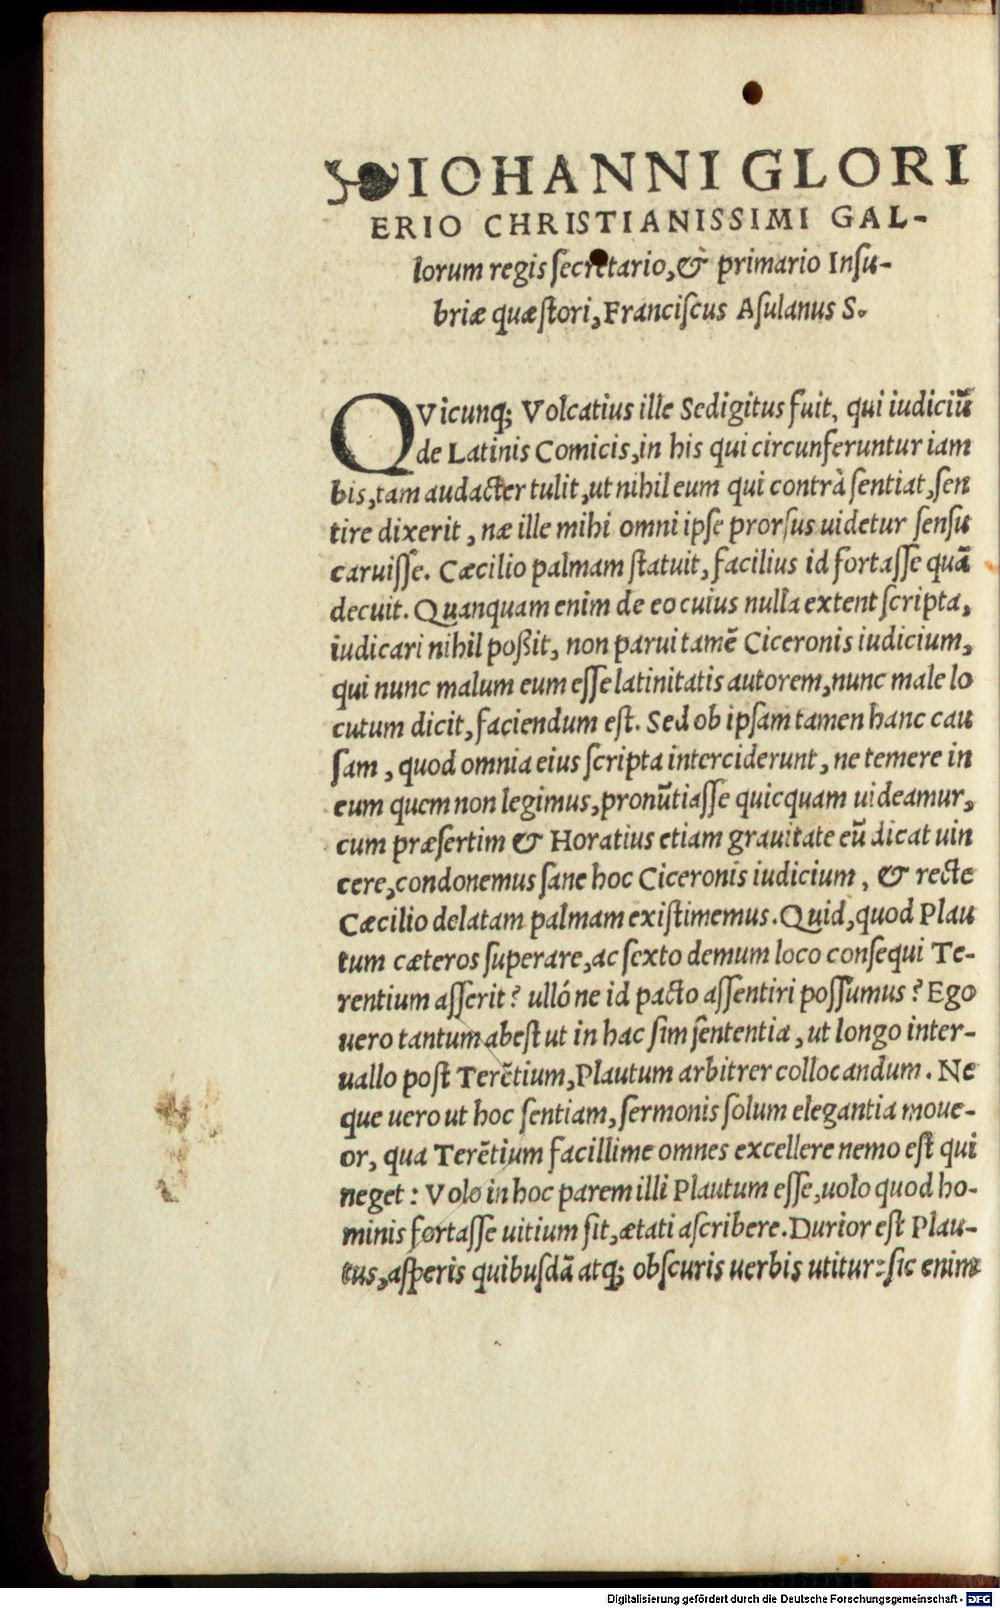 ❧IOHANNI GLORI
ERIO CHRISTIANISSIMI GAL-
lorum regis secretario,& primario Insu-
briæ quæstori,Franciscus Asulanus S.
QVicunq; Volcatius ille Sedigitus fuit, qui iudiciũ
de Latinis Comicis,in his qui circunferuntur iam
bis,tam audacter tulit,ut nihil eum qui contrà sentiat,sen
tire dixerit, næ ille mihi omni ipse prorsus uidetur sensu
caruisse. Cæcilio palmam statuit, facilius id fortasse quã
decuit. Quanquam enim de eo cuius nulla extent scripta,
iudicari nihil poßit, non parui tamẽ Ciceronis iudicium,
qui nunc malum eum esse latinitatis autorem,nunc male lo
cutum dicit, faciendum est. Sed ob ipsam tamen hanc cau
sam, quod omnia eius scripta interciderunt, ne temere in
eum quem non legimus,pronũtiasse quicquam uideamur,
cum præsertim & Horatius etiam grauitate eũ dicat uin
cere,condonemus sane hoc Ciceronis iudicium, & recte
Cæcilio delatam palmam existimemus. Quid,quod Plau
tum cæteros superare,ac sexto demum loco consequi Te-
rentium asserit? ullóne id pacto assentiri possumus? Ego
uero tantum abest ut in hac sim sententia, ut longo inter-
uallo post Terẽtium,Plautum arbitrer collocandum. Ne
que uero ut hoc sentiam, sermonis solum elegantia moue-
or, qua Terẽtium facillime omnes excellere nemo est qui
neget: Volo in hoc parem illi Plautum esse,uolo quod ho-
minis fortasse uitium sit,ætati ascribere. Durior est Plau-
tus,asperis quibusdã atq; obscuris uerbis utitur:sic enim
Digitalisierung gefördert durch die Deutsche Forschungsgemeinschaft - DFG